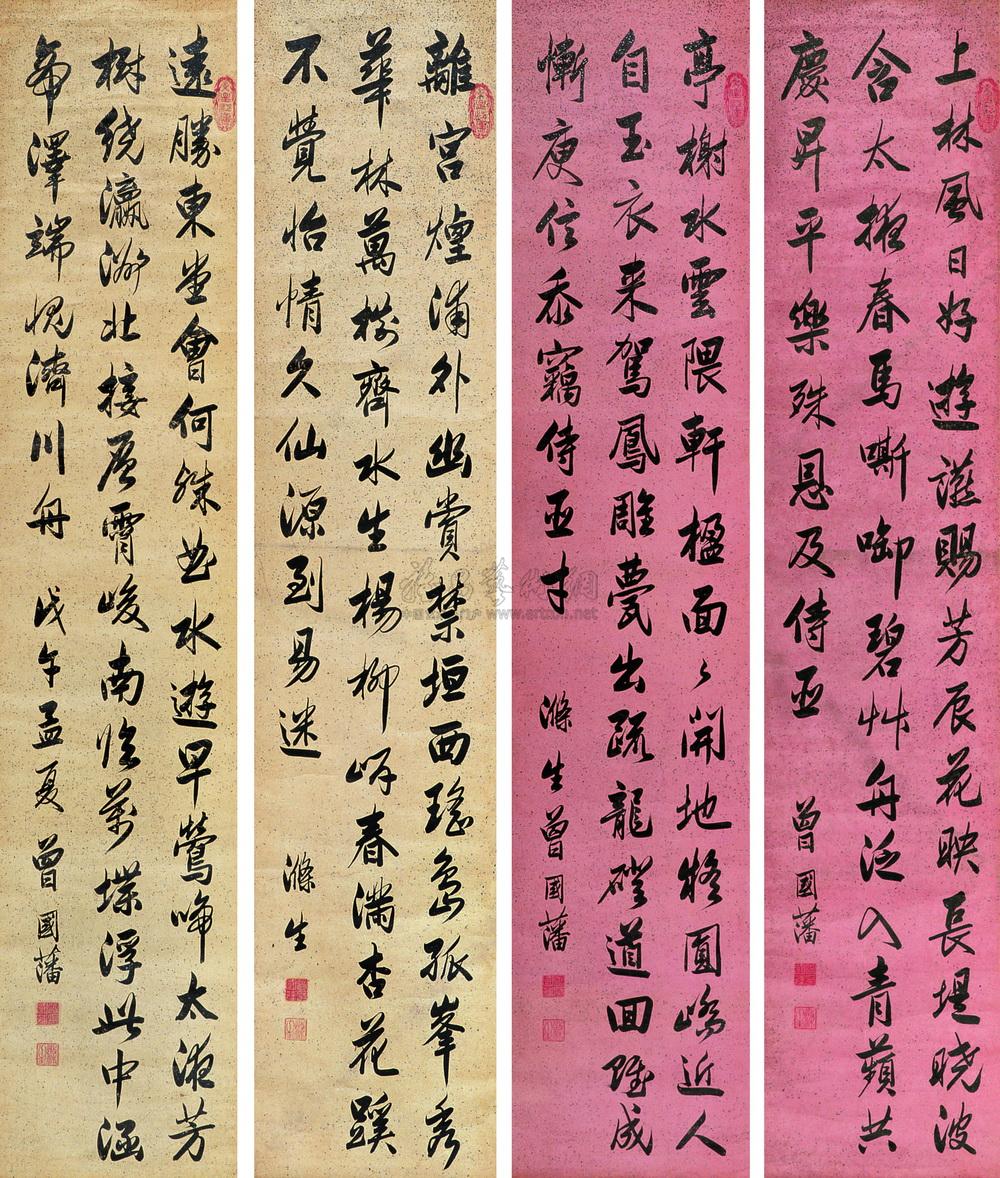 上林風日好遊讌賜芳辰花映長堤曉波
含太掖春馬嘶啣碧艸舟泛入青蘋共
慶昇平樂殊恩及侍臣
曾國藩
亭榭水雲隈軒楹面々開地將圓嶠近人
自玉衣来駕鳳雕甍出疏龍磴道回雖成
慚庾信忝竊侍臣才
滌生曾國藩
離宮煙浦外幽賞禁垣西瑤島孤峯秀
華林萬樹齊水生楊柳岸春滿杏花蹊
不覺怡情久仙源到易迷
滌生
遠勝東堂會何殊曲水遊早鶯啼太液芳
樹繞瀛洲北接層霄峻南臨萬堞浮此中涵
帝澤端愧濟川舟
戊午孟夏曾國藩